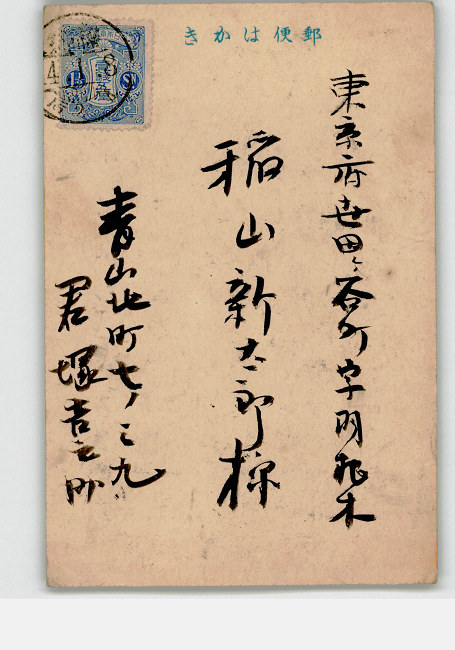 郵便はかき
東京府世田ヶ谷町字明
稲山新太郎様
青山北町七ノ三九
君塚吉之助